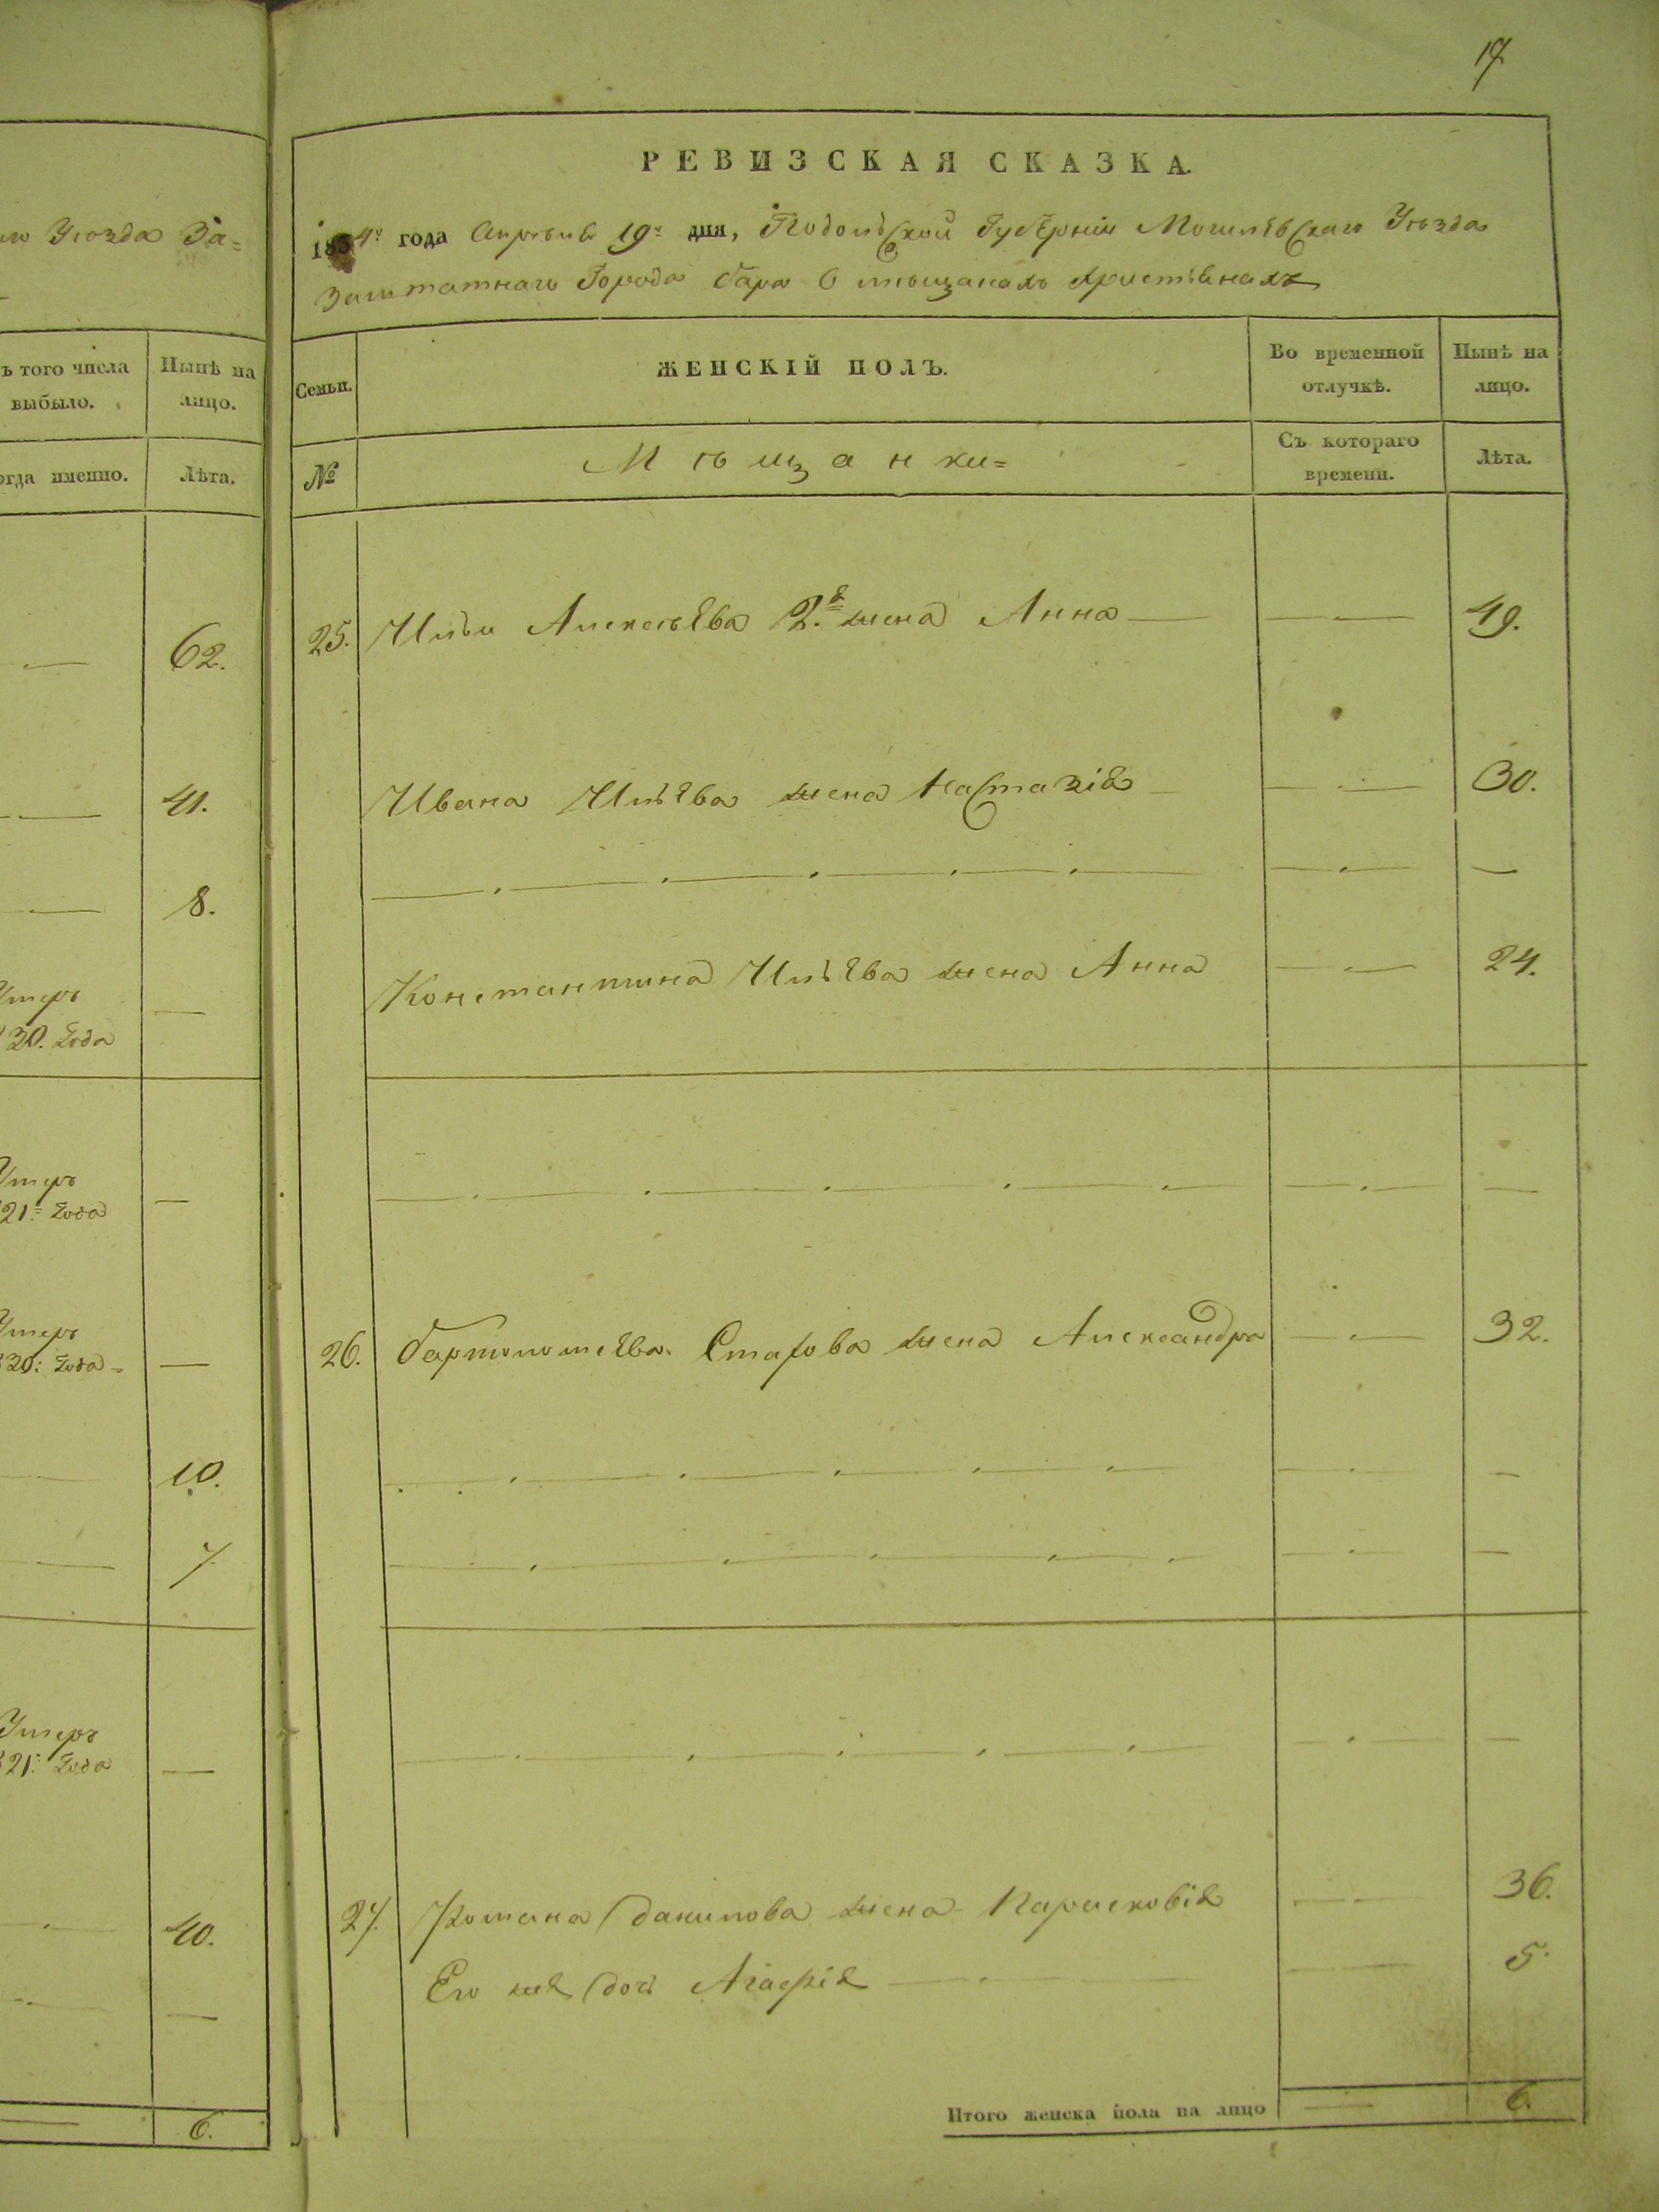 17.
го Уѣзда За=
ъ того числа
выбыло.
Нынѣ на
лицо.
огда именно.
Лѣта.
62.
41.
8.
Умеръ
30. года
Умеръ
21.= года
Умеръ
830: года
10.
7.
Умеръ
821: года
40.
6.
РЕВИЗСКАЯ СКАЗКА.
1834го года Апрѣля 19го дня, Подольской Губерніи Могилѣвскаго Уѣзда
Заштатнаго Города Бара О мѣщанахъ Христіанахъ
Семьи.
ЖЕНСКІЙ ПОЛЪ.
Во временной
отлучкѣ.
Нынѣ на
лицо.
№
Мѣщанки=
Съ котораго
времени.
Лѣта.
25. Ильи Алексѣева 2.я жена Анна 49.
Ивана Ильева жена Настазія 30.
Константина Ильева жена Анна 24.
26. Бартоломева жена Александра 32.
27. Романа Данилова жена Парасковія 36.
Его же дочь Агафія 5.
Итого женска пола на лицо 6.